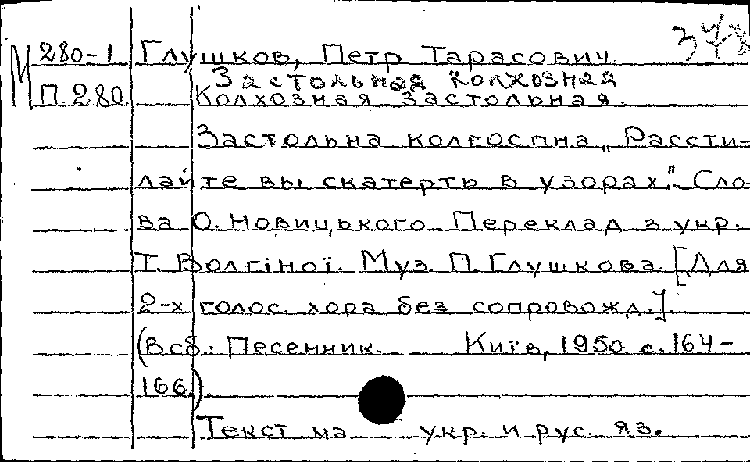 М 280-1 Глушков, Петр Тарасович. 378
Застольная колхозная
П 280 Колхозная застольная.
Застольна колгоспна „Рассти-
лайте вы скатерть в узорах". Сло-
ва О. Новицького. Переклад з укр.
Т. Волгіної. Муз. П. Глушкова. [Для
2-х голос. хора без сопровожд.].
(В сб.: Песенник Київ, 1950 с. 164-
166)
Текст на укр. и рус. яз.